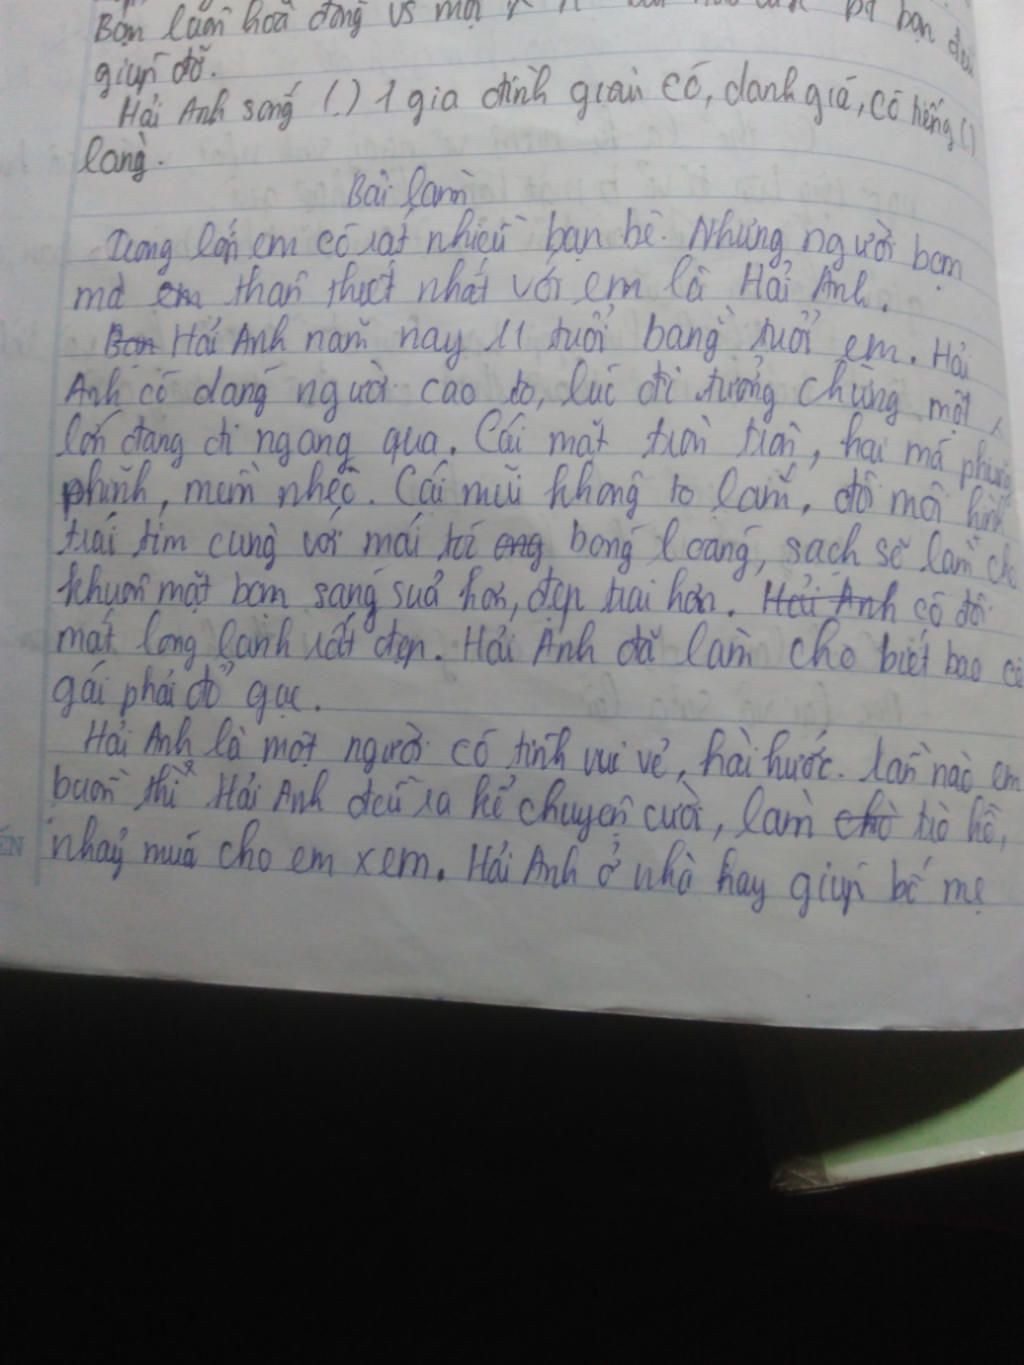 Bạn luôn hoà đồng vs mọi bạn đều
giúp đỡ.
Hải Anh sống (.) 1 gia đình giàu có, danh giá, có tiếng (.)
làng.
Bài làm
Trong lớp em có rất nhiều bạn bè. Nhưng người bạn
mà em thân thiết nhất với em là Hải Anh.
Bạn Hải Anh năm nay 11 tuổi bằng tuổi em. Hải
Anh có dáng người cao to, lúc đi tưởng chừng một
lớn đang đi ngang qua. Cái mặt tròn tròn, hai má phúng
phính, mềm nhẽo. Cái mũi không to lắm, đôi môi hình
trái tim cùng với mái tóc óng bóng loáng, sạch sẽ làm cho
khuôn mặt bạn sáng sủa hơn, đẹp trai hơn. Hải Anh có đôi
mắt long lanh rất đẹp. Hải Anh đã làm cho biết bao cô
gái phải đổ gục.
Hải Anh là một người có tính vui vẻ, hài hước. Lần nào em
buồn thì Hải Anh đều ra kể chuyện cười, làm chò trò hề,
nhảy múa cho em xem. Hải Anh ở nhà hay giúp bố mẹ